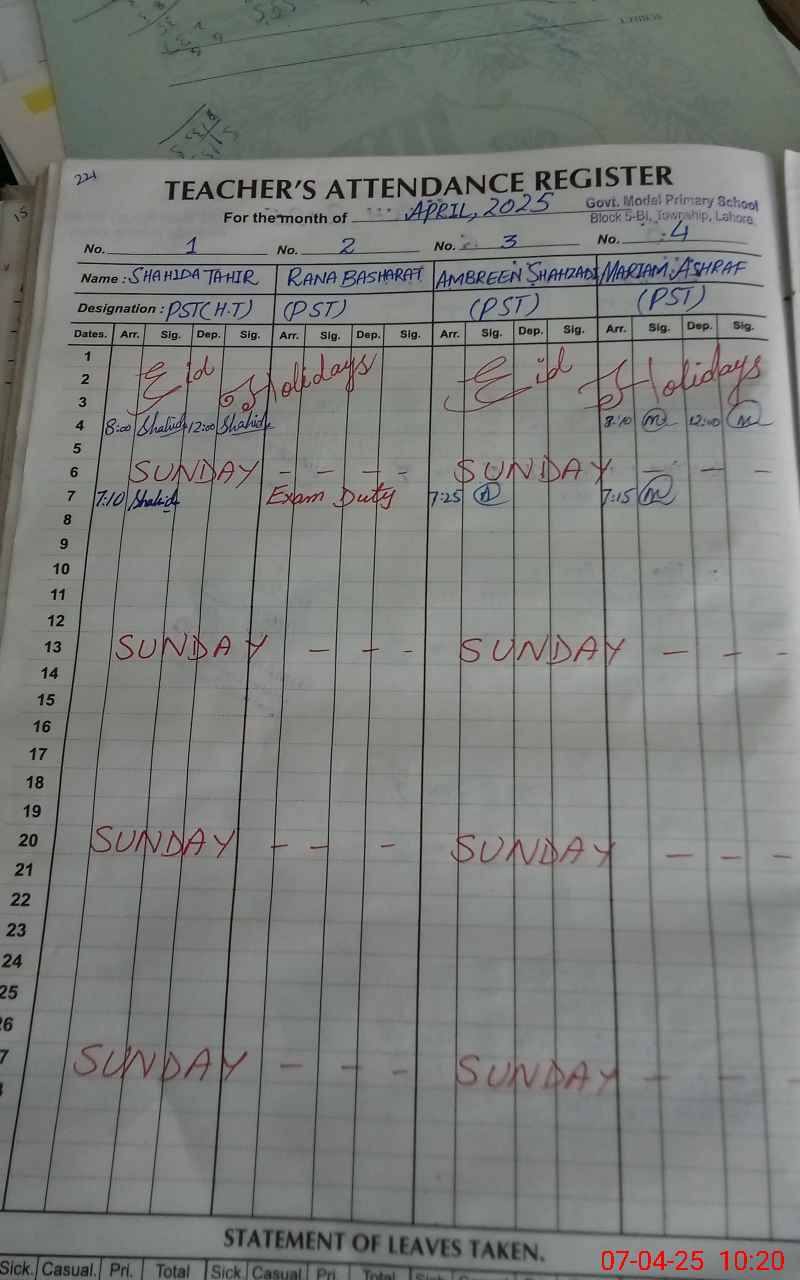 221
TEACHER'S ATTENDANCE REGISTER
For the month of APRIL, 2025
Govt. Model Primary School
Block 5-BI, Township, Lahore
No. 1 No. 2 No. 3 No. 4
Name : SHAHIDA TAHIR RANA BASHARAT AMBREEN SHAHZADI MARIAM ASHRAF
Designation : PST(H.T) (PST) (PST) (PST)
Dates. Arr. Sig. Dep. Sig. Arr. Sig. Dep. Sig. Arr. Sig. Dep. Sig. Arr. Sig. Dep. Sig.
1
2 Eid Holidays Eid Holidays
3
4 8:00 Shahida 12:00 Shahida 8:10 m 12:00 m
5
6 SUNDAY - - - - SUNDAY - - -
7 7:10 Shahida Exam Duty 7:25 A 7:15 m
8
9
10
11
12
13 SUNDAY - - - SUNDAY - - -
14
15
16
17
18
19
20 SUNDAY - - - SUNDAY - - -
21
22
23
24
25
26
7 SUNDAY - - - SUNDAY - - -
STATEMENT OF LEAVES TAKEN.
Sick. Casual. Pri. Total Sick. Casual Pri. Total Sick. Casual
07-04-25 10:20